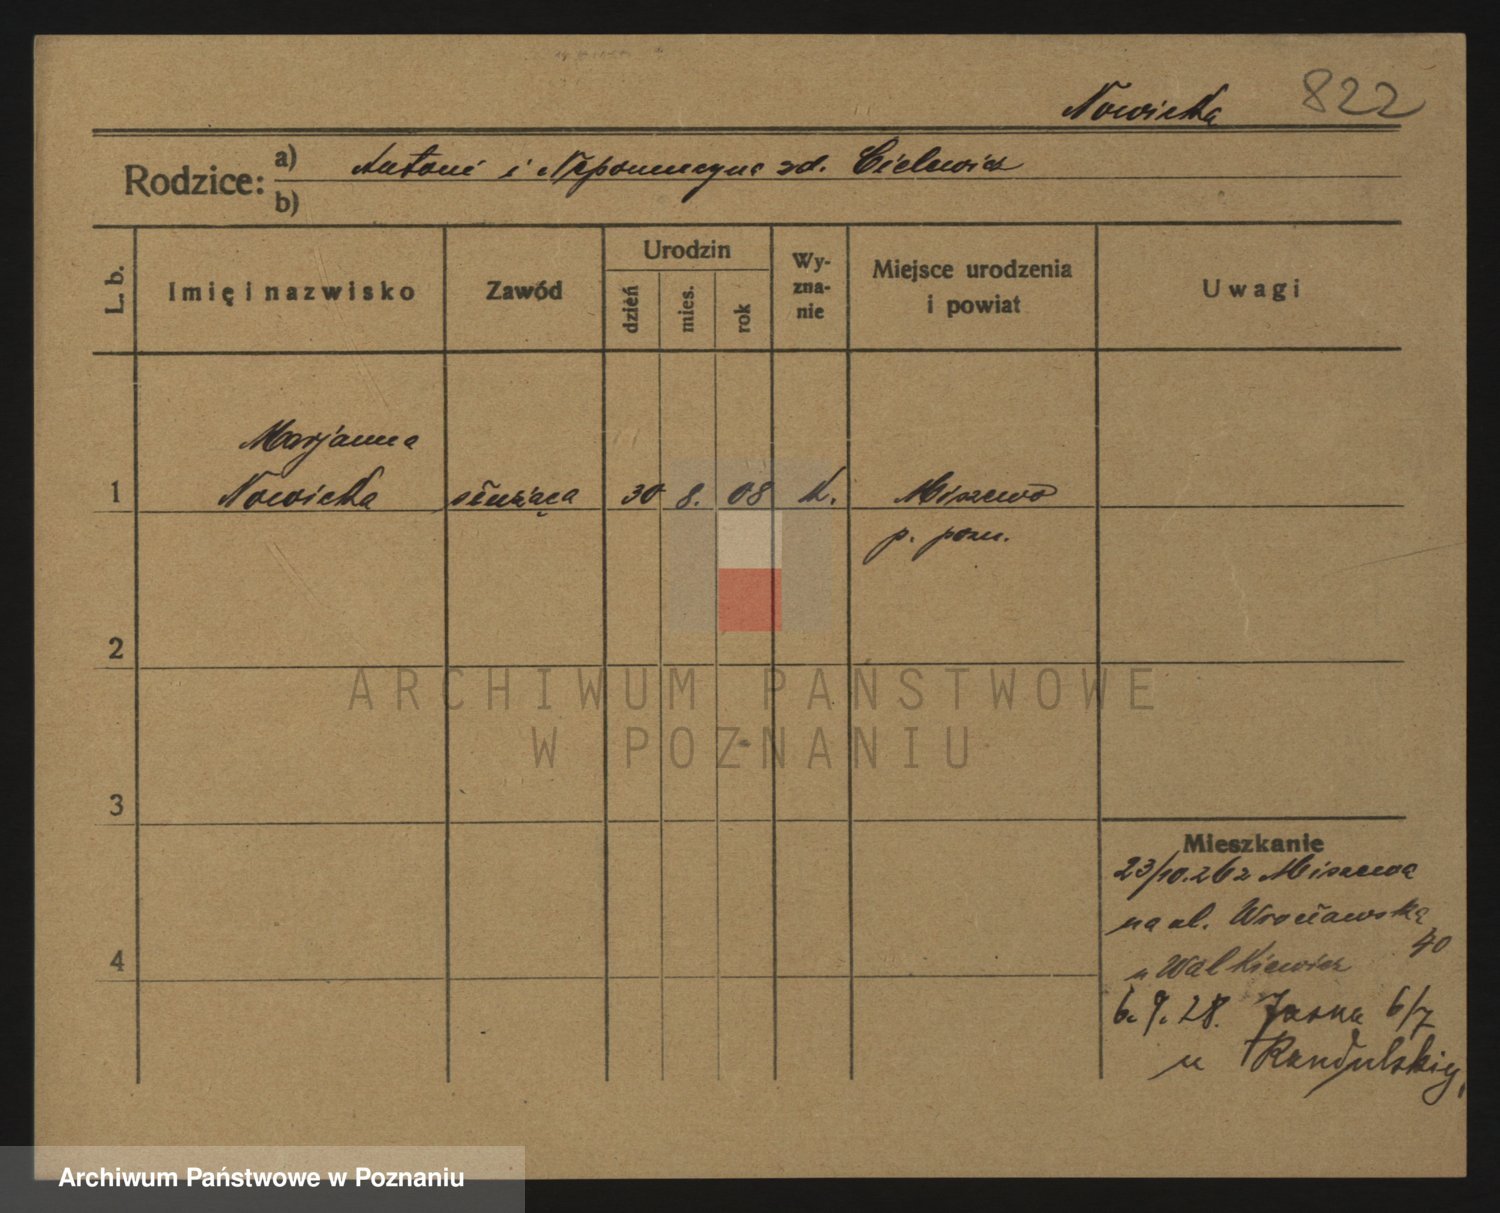 Nowicka 822
Rodzice: a) Antoni i Nepomucyna zd. Cielewicz
b)
L. b. Imię i nazwisko Zawód Urodzin dzień mies. rok Wyznanie Miejsce urodzenia i powiat Uwagi
Marjanna
1 Nowicka służąca 30 8. 08 k. Miszewo
p. pozn.
2
ARCHIWUM PAŃSTWOWE
W POZNANIU
3
Mieszkanie
23/10.26 z Miszewa
na ul. Wrocławską
40
4 u Walkiewicz
6. 9. 28. Jasna 6/7
u
Archiwum Państwowe w Poznaniu